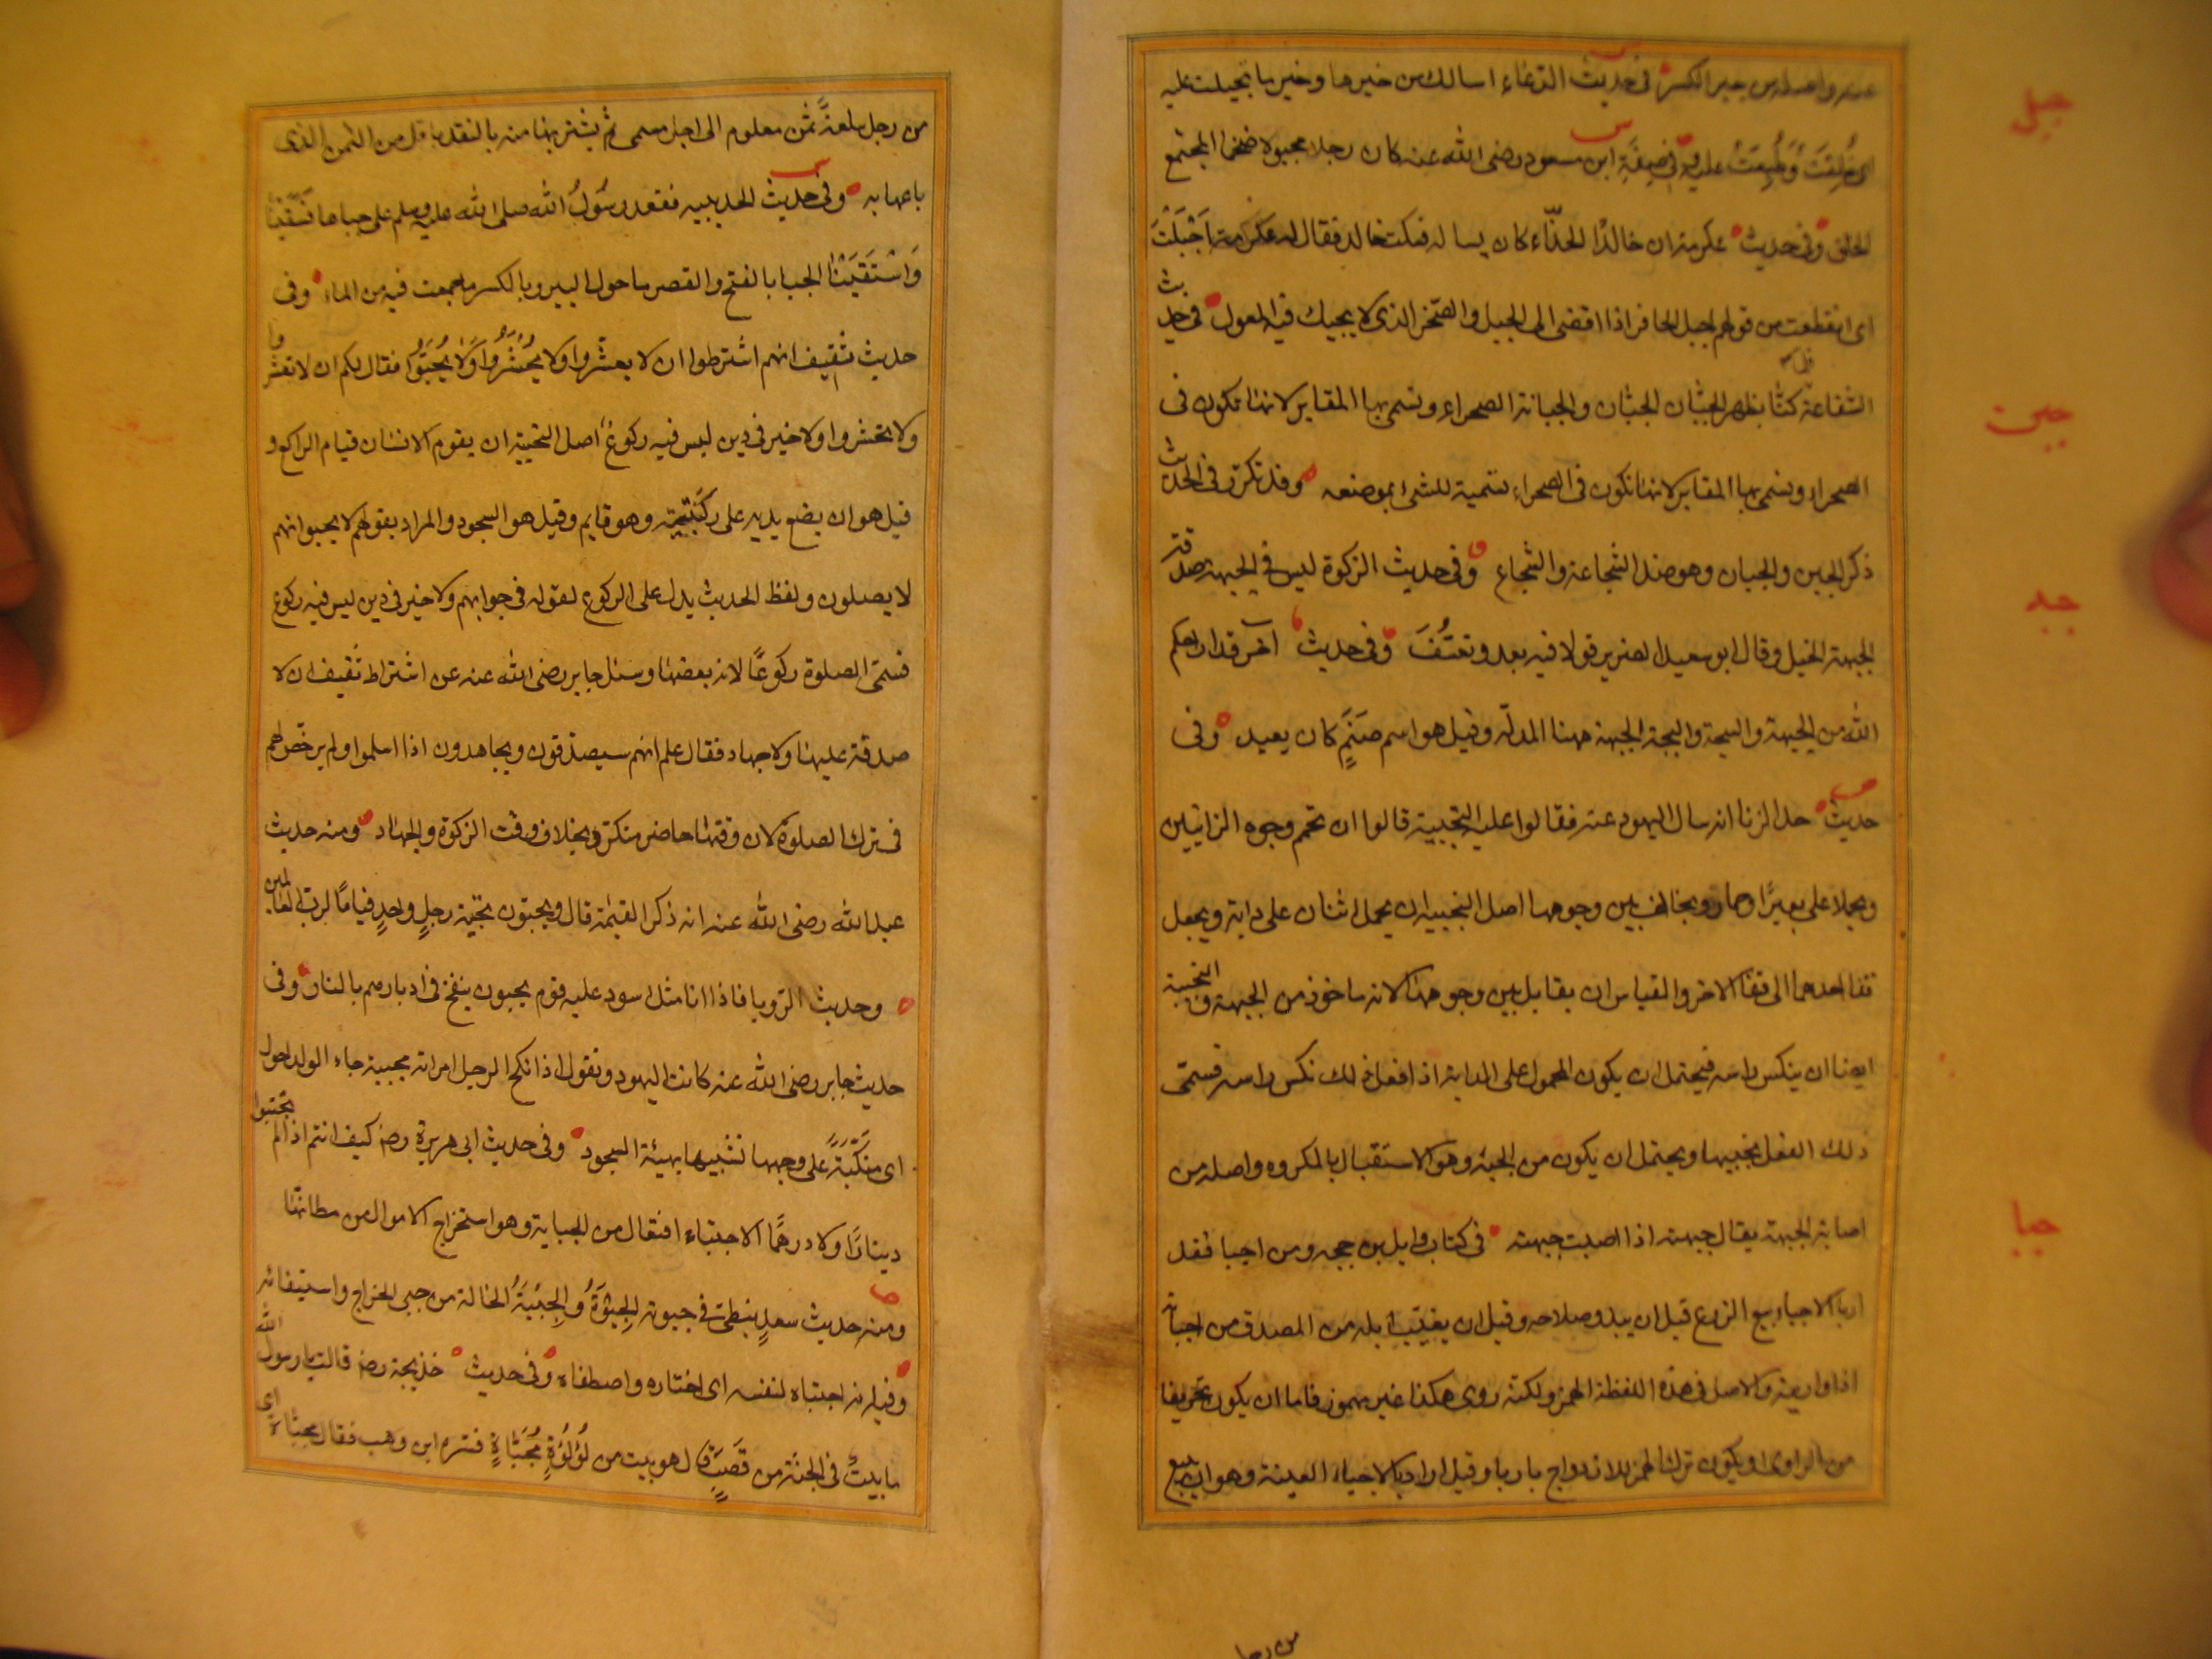 عنهم واصله من جبر الكسر في حديث الدعاء اسالك من خيرها وخير ما جبلت عليه
جبل
اى خلقت وطبعت عليه وفي صفة ابن مسعود رضى الله عنه كان رجلا مجبولا ضخما المجتمع
الخلق وفي حديث عكرمة ان خالدا الحذّاء كان يساله فسكت خالد فقال له عكرمة اَجْبَلْتَ
اى انقطعت من قولهم اجبل الحافر اذا افضى الى الجبل والصّخر الذى لا يحيك فيه المعول في حديث
الشفاعة كنّا بظهر الجبّان الجبّان والجبانة الصحراء وتسمى بها المقابر لانها تكون فى
جبن
الصحراء وتسمى بها المقابر لانها تكون فى الصحراء تسمية للشئ بموضعه وقد تكرّر فى الحديث
ذكر الجبن والجبان وهو ضد الشجاعة والشجاع وفي حديث الزكوة ليس في الجبهة صدقة
جبه
الجبهة الخيل وقال ابو سعيد الضرير قولا فيه بعد وتعسّف وفى حديث آخر قد اراحكم
الله من الجبهة والسجة والبجة الجبهة ههنا المذلّة وقيل هو اسم صَنَمٍ كان يعبد وفى
حديث حد الزنا انه سال اليهود عنه فقالوا عليه التجبية قالوا ان تحمم وجوه الزانيين
ويحملا على بعير او حمار ويخالف بين وجوهها اصل التجبية ان يحمل اثنان على دابة ويجعل
قفا احدهما الى قفا الاخر والقياس ان يقابل بين وجوههما لانه ماخوذ من الجبهة والتجبية
ايضا ان ينكس راسه فيحتمل ان يكون المحمول على الدابة اذا فعل ذلك نكس راسه فسمّى
ذلك الفعل تجبيها ويحتمل ان يكون من الجبه وهو الاستقبال بالمكروه واصله من
اصابة الجبهة يقال جبهته اذا اصبت جبهته فى كتاب وايل بن حجر ومن اجبا فقد
جبا
اربا الاجباء بيع الزرع قبل ان يبدو صلاحه وقيل ان يغيّب ابله من المصدق من اجباته
اذا واريته والاصل فى هذه اللفظة الهمز ولكنه روى هكذا غير مهموز فاما ان يكون تحريفا
من الراوى او يكون ترك الهمز للازدواج باربا وقيل اراد بالاجباء العينة وهو ان يبيع
من رجل
من رجل سلعة بثمن معلوم الى اجل مسمى ثم يشتريها منه بالنقد باقل من الثمن الذى
باعها به وفى حديث الحديبيه فقعد رسُولُ الله صلى الله عليه وسلم على جباها فسَقَيْنا
وَاسْتَقَيْنا الجبا بالفتح والقصر ما حول البير وبالكسر ما جمعت فيه من الماء وفى
حديث ثقيف انهم اشترطوا ان لا يعشروا ولا يُحْشَرُوا وَلا يُجَبُّوا فقال لكم ان لا تعشروا
ولا تحشروا ولا خير فى دين ليس فيه ركوعٌ اصل التجبية ان يقوم الانسان قيام الراكع و
قيل هو ان يضع يديه على ركبتيه وهو قايم وقيل هو السجود والمراد بقولهم لا يجبوا انهم
لا يصلون ولفظ الحديث يدل على الركوع لقوله فى جوابهم ولا خير فى دين ليس فيه ركوع
فسمّى الصلوة ركوعًا لانه بعضها وسئل جابر رضى الله عنه عن اشتراط ثقيف ان لا
صدقة عليها ولا جهاد فقال علم انهم سيصدّقون ويجاهدون اذا اسلموا ولم يرخّص لهم
فى ترك الصلوة لان وقتها حاضر متكرّر بخلاف وقت الزكوة والجهاد ومنه حديث
عبد الله رضى الله عنه انه ذكر القيمة قال ويجبّون تجبية رجلٍ واحدٍ قيامًا لرب العالمين
وحديث الرّويا فاذا انا مثل اسود عليه قوم مجبون ينفخ فى ادبارهم بالنار وفى
حديث جابر رضى الله عنه كانت اليهود وتقول اذا نكح الرجل امراته مجبية جاء الولد احول
اى منكبّةً على وجهها تشبيها بهيئة السجود وفى حديث ابى هريرة رضه كيف انتم اذا لم تجتبوا
دينارًا ولا درهمًا الاجتباء افتعال من الجباية وهو استخراج الاموال من مظانها
ومنه حديث سعدٍ ينبطئ فى جبوته الجِبْوَةُ والجِبْيَةُ الحالة من جبى الخراج واستيفائه
وفيه انه اجتباه لنفسه اى اختاره واصطفاه وفى حديث خديجة رضه قالت يا رسول الله
ما بيتٌ فى الجنّة من قَصَبٍ قال هو بيت من لُؤلُؤةٍ مُجَبَّاةٍ فسّره ابن وهب فقال مجبّاة اى